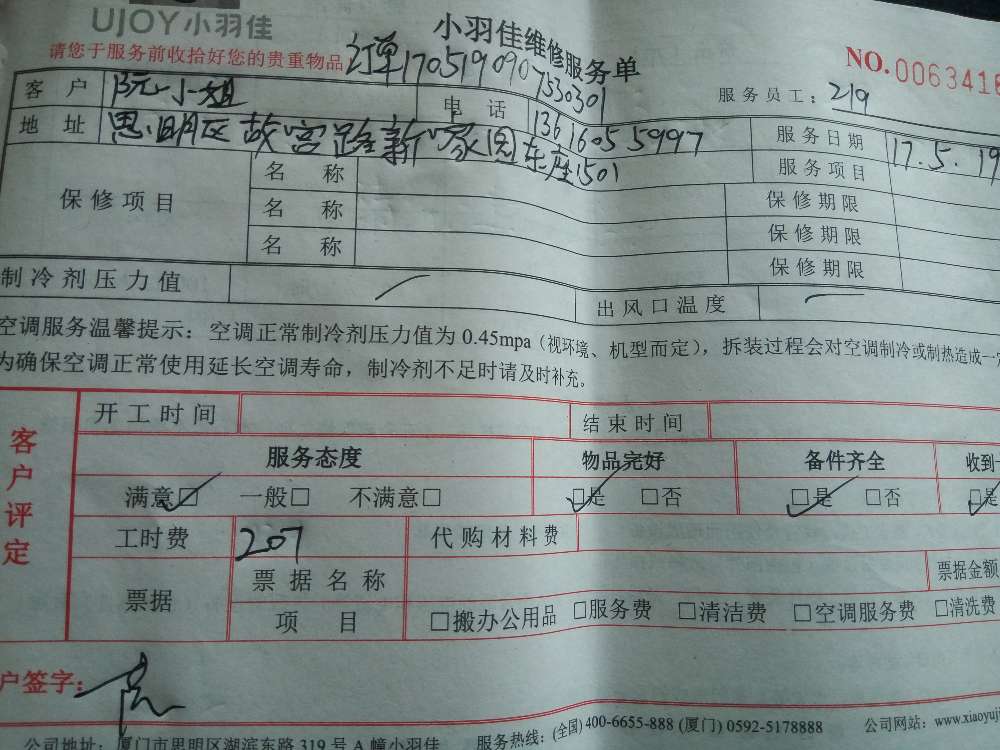 UJOY小羽佳
小羽佳维修服务单
请您于服务前收拾好您的贵重物品
订单1705190907530301
NO.0063416
服务员工：219
客户 阮小姐 电话 13616055997 服务日期 17.5.19
地址 思明区故宫路新家园东座1501 服务项目
保修项目 名称 保修期限
名称 保修期限
名称 保修期限
制冷剂压力值 出风口温度
空调服务温馨提示：空调正常制冷剂压力值为0.45mpa（视环境、机型而定），拆装过程会对空调制冷或制热造成一定
为确保空调正常使用延长空调寿命，制冷剂不足时请及时补充。
客户评定
开工时间 结束时间
服务态度 物品完好 备件齐全 收到
满意□ 一般□ 不满意□ □是 □否 □是 □否 □是
工时费 207 代购材料费
票据 票据名称 票据金额
项目 □搬办公用品 □服务费 □清洁费 □空调服务费 □清洗费
户签字：
公司地址：厦门市思明区湖滨东路319号A幢小羽佳 服务热线：(全国)400-6655-888 (厦门) 0592-5178888 公司网站：www.xiaoyuj